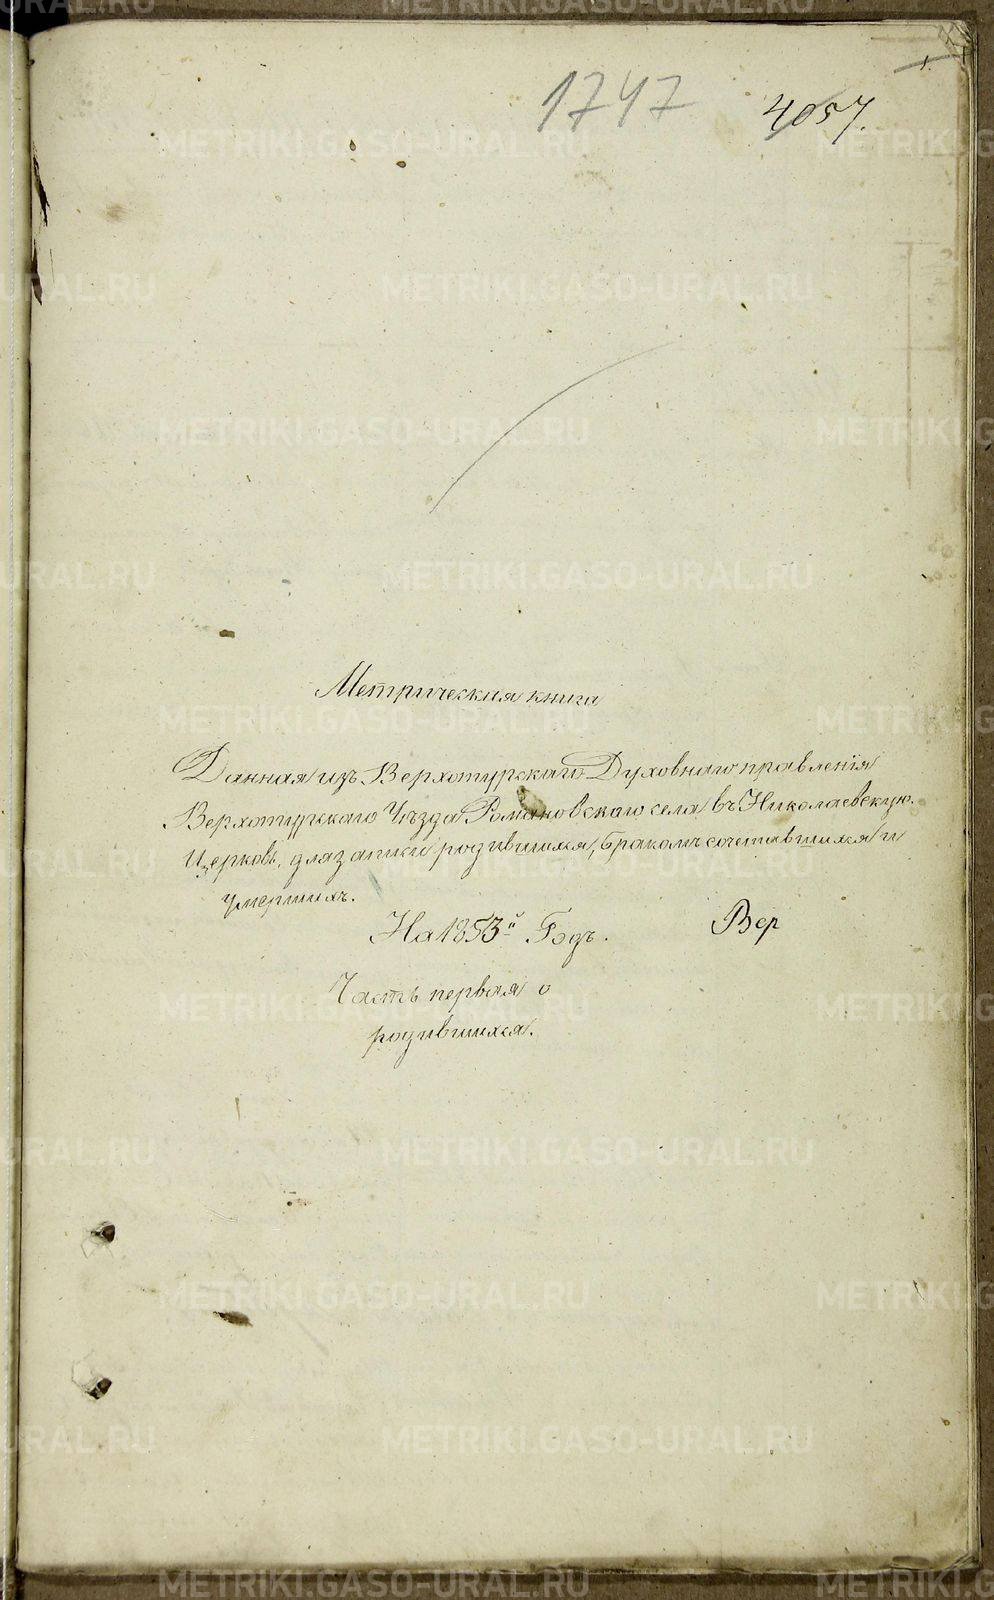 1.
1747
4057.
Метрическая книга
Данная изъ Верхотурскаго Духовнаго правленія
Верхотурскаго Уѣзда Романовскаго села въ Николаевскую
Церковь, для записки родившихся, бракомъ сочетавшихся и
умершихъ.
На 1853й Годъ.
Вер
Часть первая о
родившихся.
METRIKI.GASO-URAL.RU